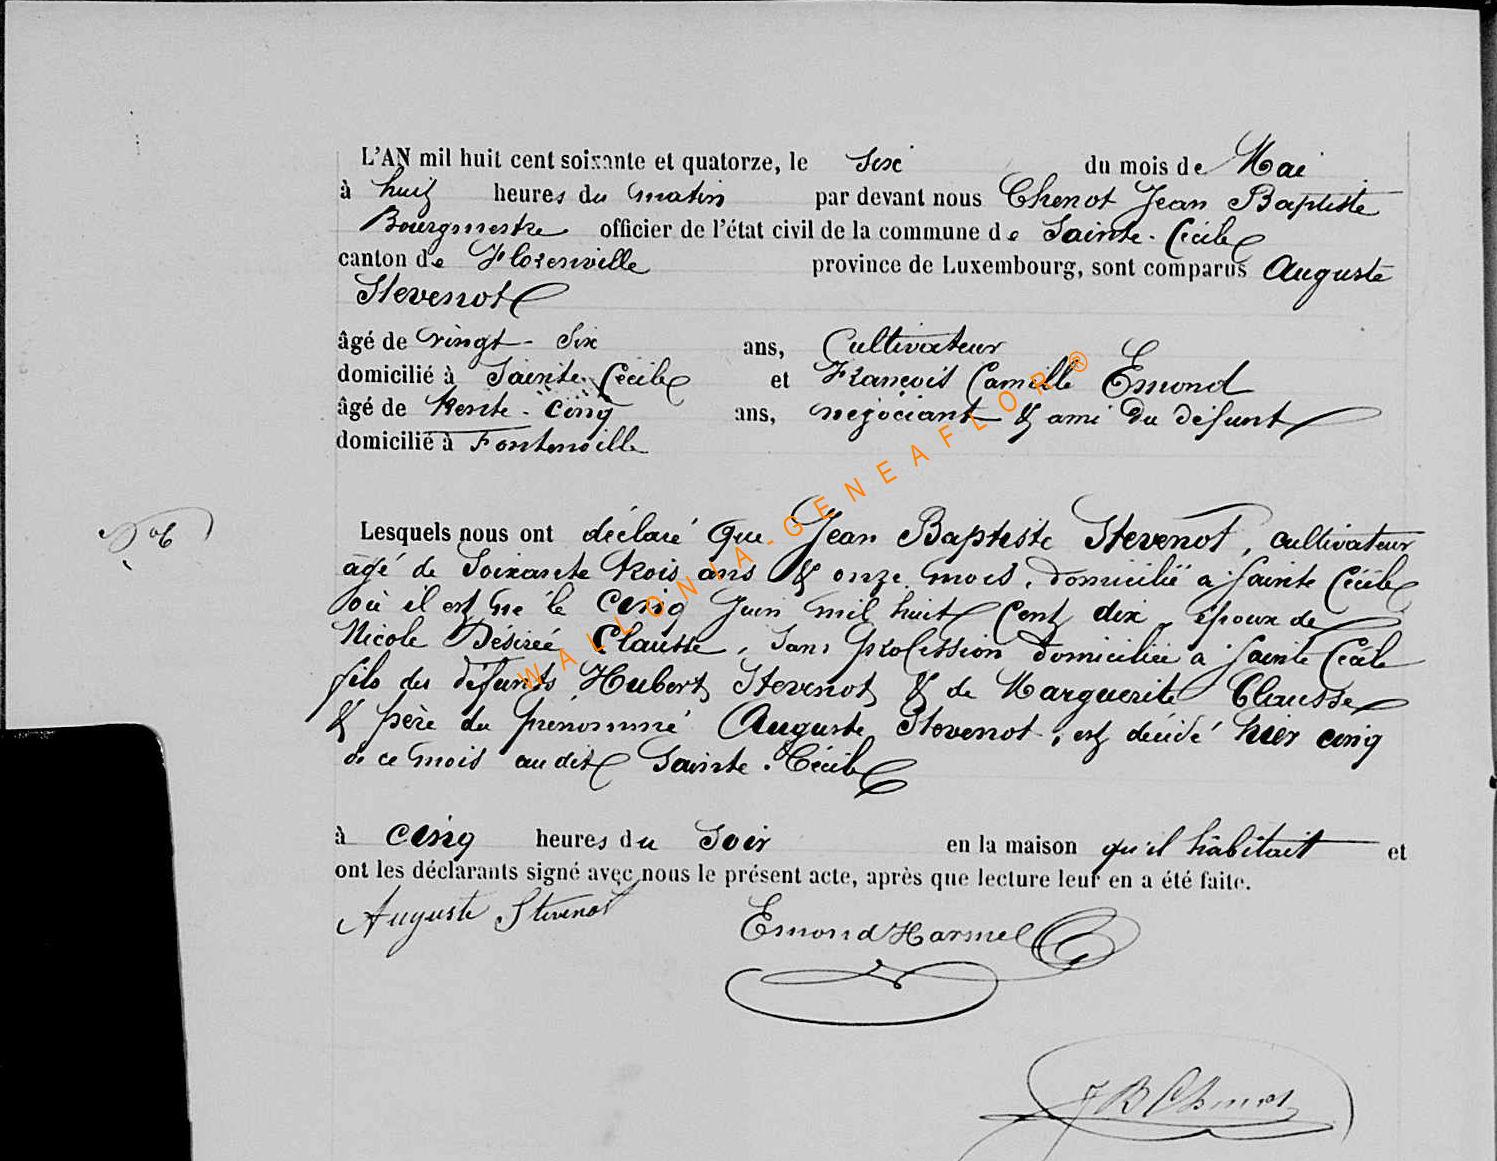 L'AN mil huit cent soixante et quatorze, le Six du mois de Mai
à huit heures du matin par devant nous Chenot Jean Baptiste
Bourgmestre officier de l'état civil de la commune de Sainte-Cécile
canton de Florenville province de Luxembourg, sont comparus Auguste
Stevenot
âgé de vingt-Six ans, Cultivateur
domicilié à Sainte-Cécile et François Camille Emond
âgé de trente-cinq ans, négociant & ami du défunt
domicilié à Fontenoille
Lesquels nous ont déclaré que Jean Baptiste Stevenot, cultivateur
âgé de Soixante trois ans & onze mois, domicilié à Sainte Cécile
où il est né le cinq Juin mil huit Cent dix, époux de
Nicole Désirée Clausse, sans profession domiciliée à Sainte Cécile
fils des défunts Hubert Stevenot & de Marguerite Clausse
& père du prénommé Auguste Stevenot, est décédé hier cinq
de ce mois audit Sainte-Cécile
à cinq heures du Soir en la maison qu'il habitait et
ont les déclarants signé avec nous le présent acte, après que lecture leur en a été faite.
Auguste Stevenot EmondHarmel
JB Chenot
WALLONIA-GENEAFLOR®